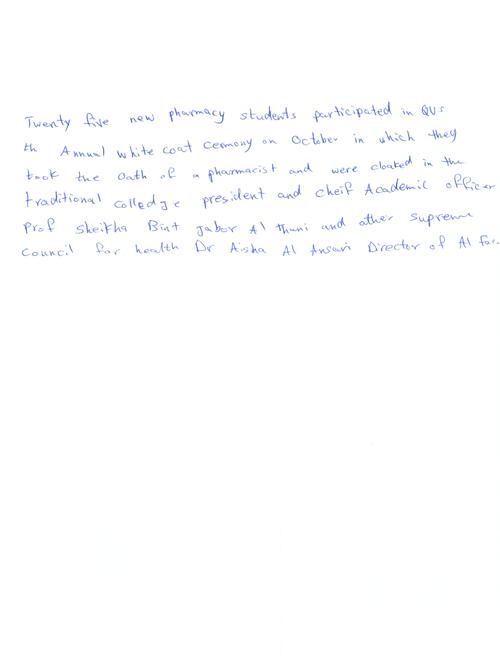 Twenty five new pharmacy students participated in QUs
th Annual white coat Cermony on October in which they
took the Oath of a pharmacist and were cloaked in the
traditional colledge president and cheif Academic officer
Prof Sheikha Bint jabor Al thani and other supreme
Council for health Dr Aisha Al Ansari Director of Al